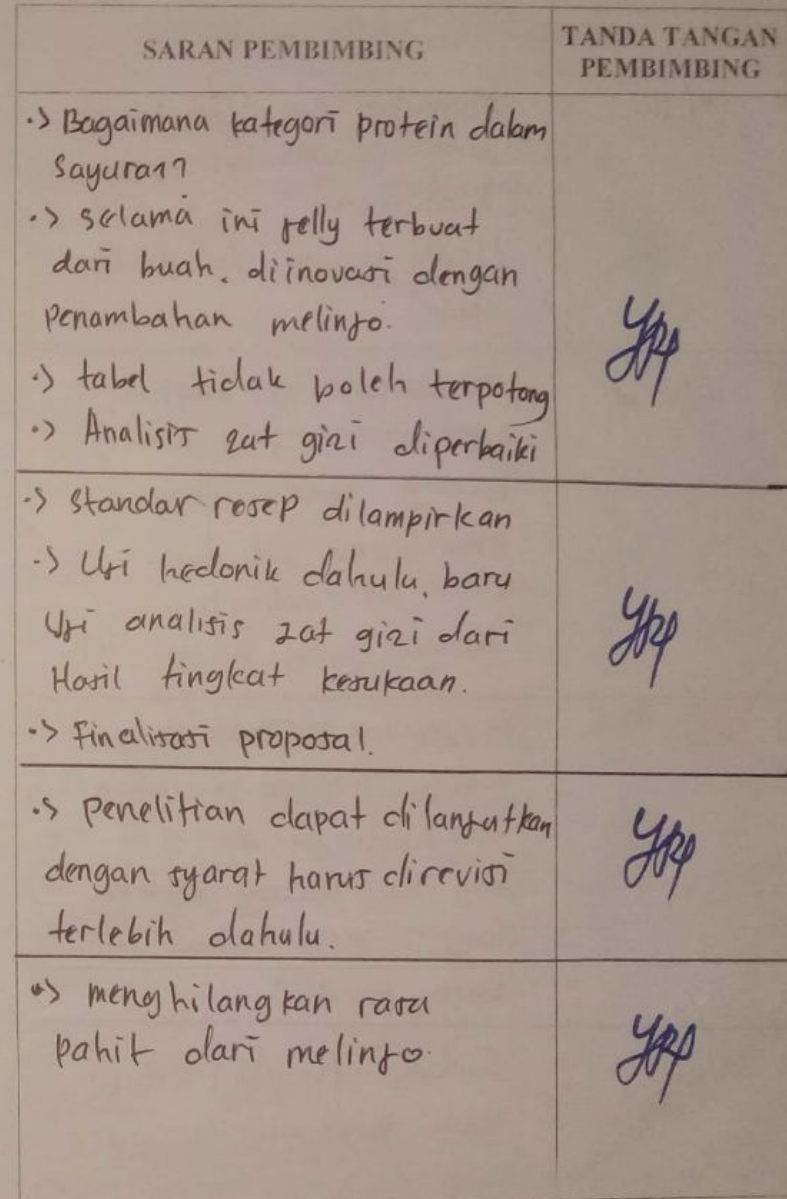 SARAN PEMBIMBING
TANDA TANGAN
PEMBIMBING
•> Bagaimana kategori protein dalam
Sayuran?
•> selama ini jelly terbuat
dari buah. diinovasi dengan
Penambahan melinjo.
•> tabel tidak boleh terpotong
•> Analisis zat gizi diperbaiki
•> standar resep dilampirkan
•> Uji hedonik dahulu, baru
Uji analisis zat gizi dari
Hasil tingkat kesukaan.
•> Finalisasi proposal.
•> Penelitian dapat dilanjutkan
dengan syarat harus direvisi
terlebih dahulu.
•> menghilangkan rasa
Pahit dari melinjo.